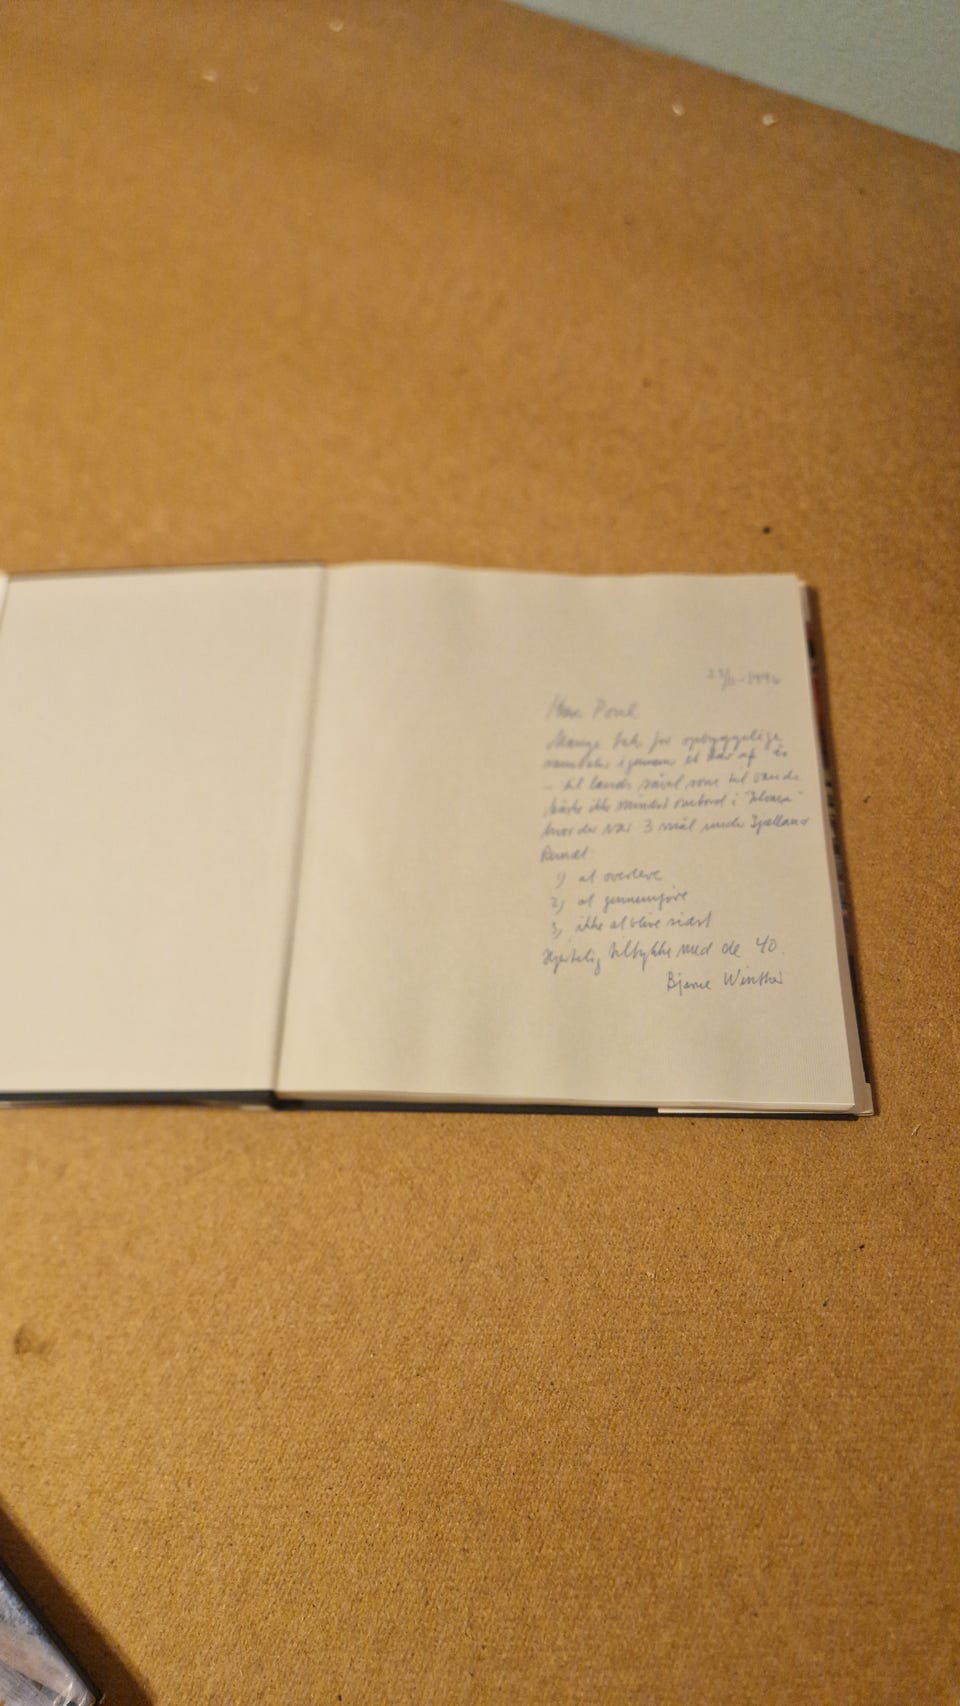 Kære Poul
Mange tak for opbyggelige
samtaler igennem et hav af år
- til lands såvel som til vands
ikke mindst ombord i
hvor der var 3 mål under Sjælland
Rundt:
1) at overleve
2) at gennemføre
3) ikke at blive sidst
Hjertelig tillykke med de 40.
Bjarne Winther